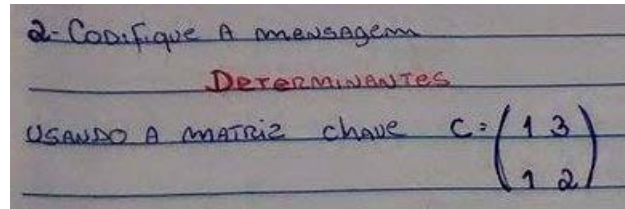 2- Codifique A mensagem
DeTeRMiNANTes
USANDO A MATRiz chave C = (1 3
1 2)